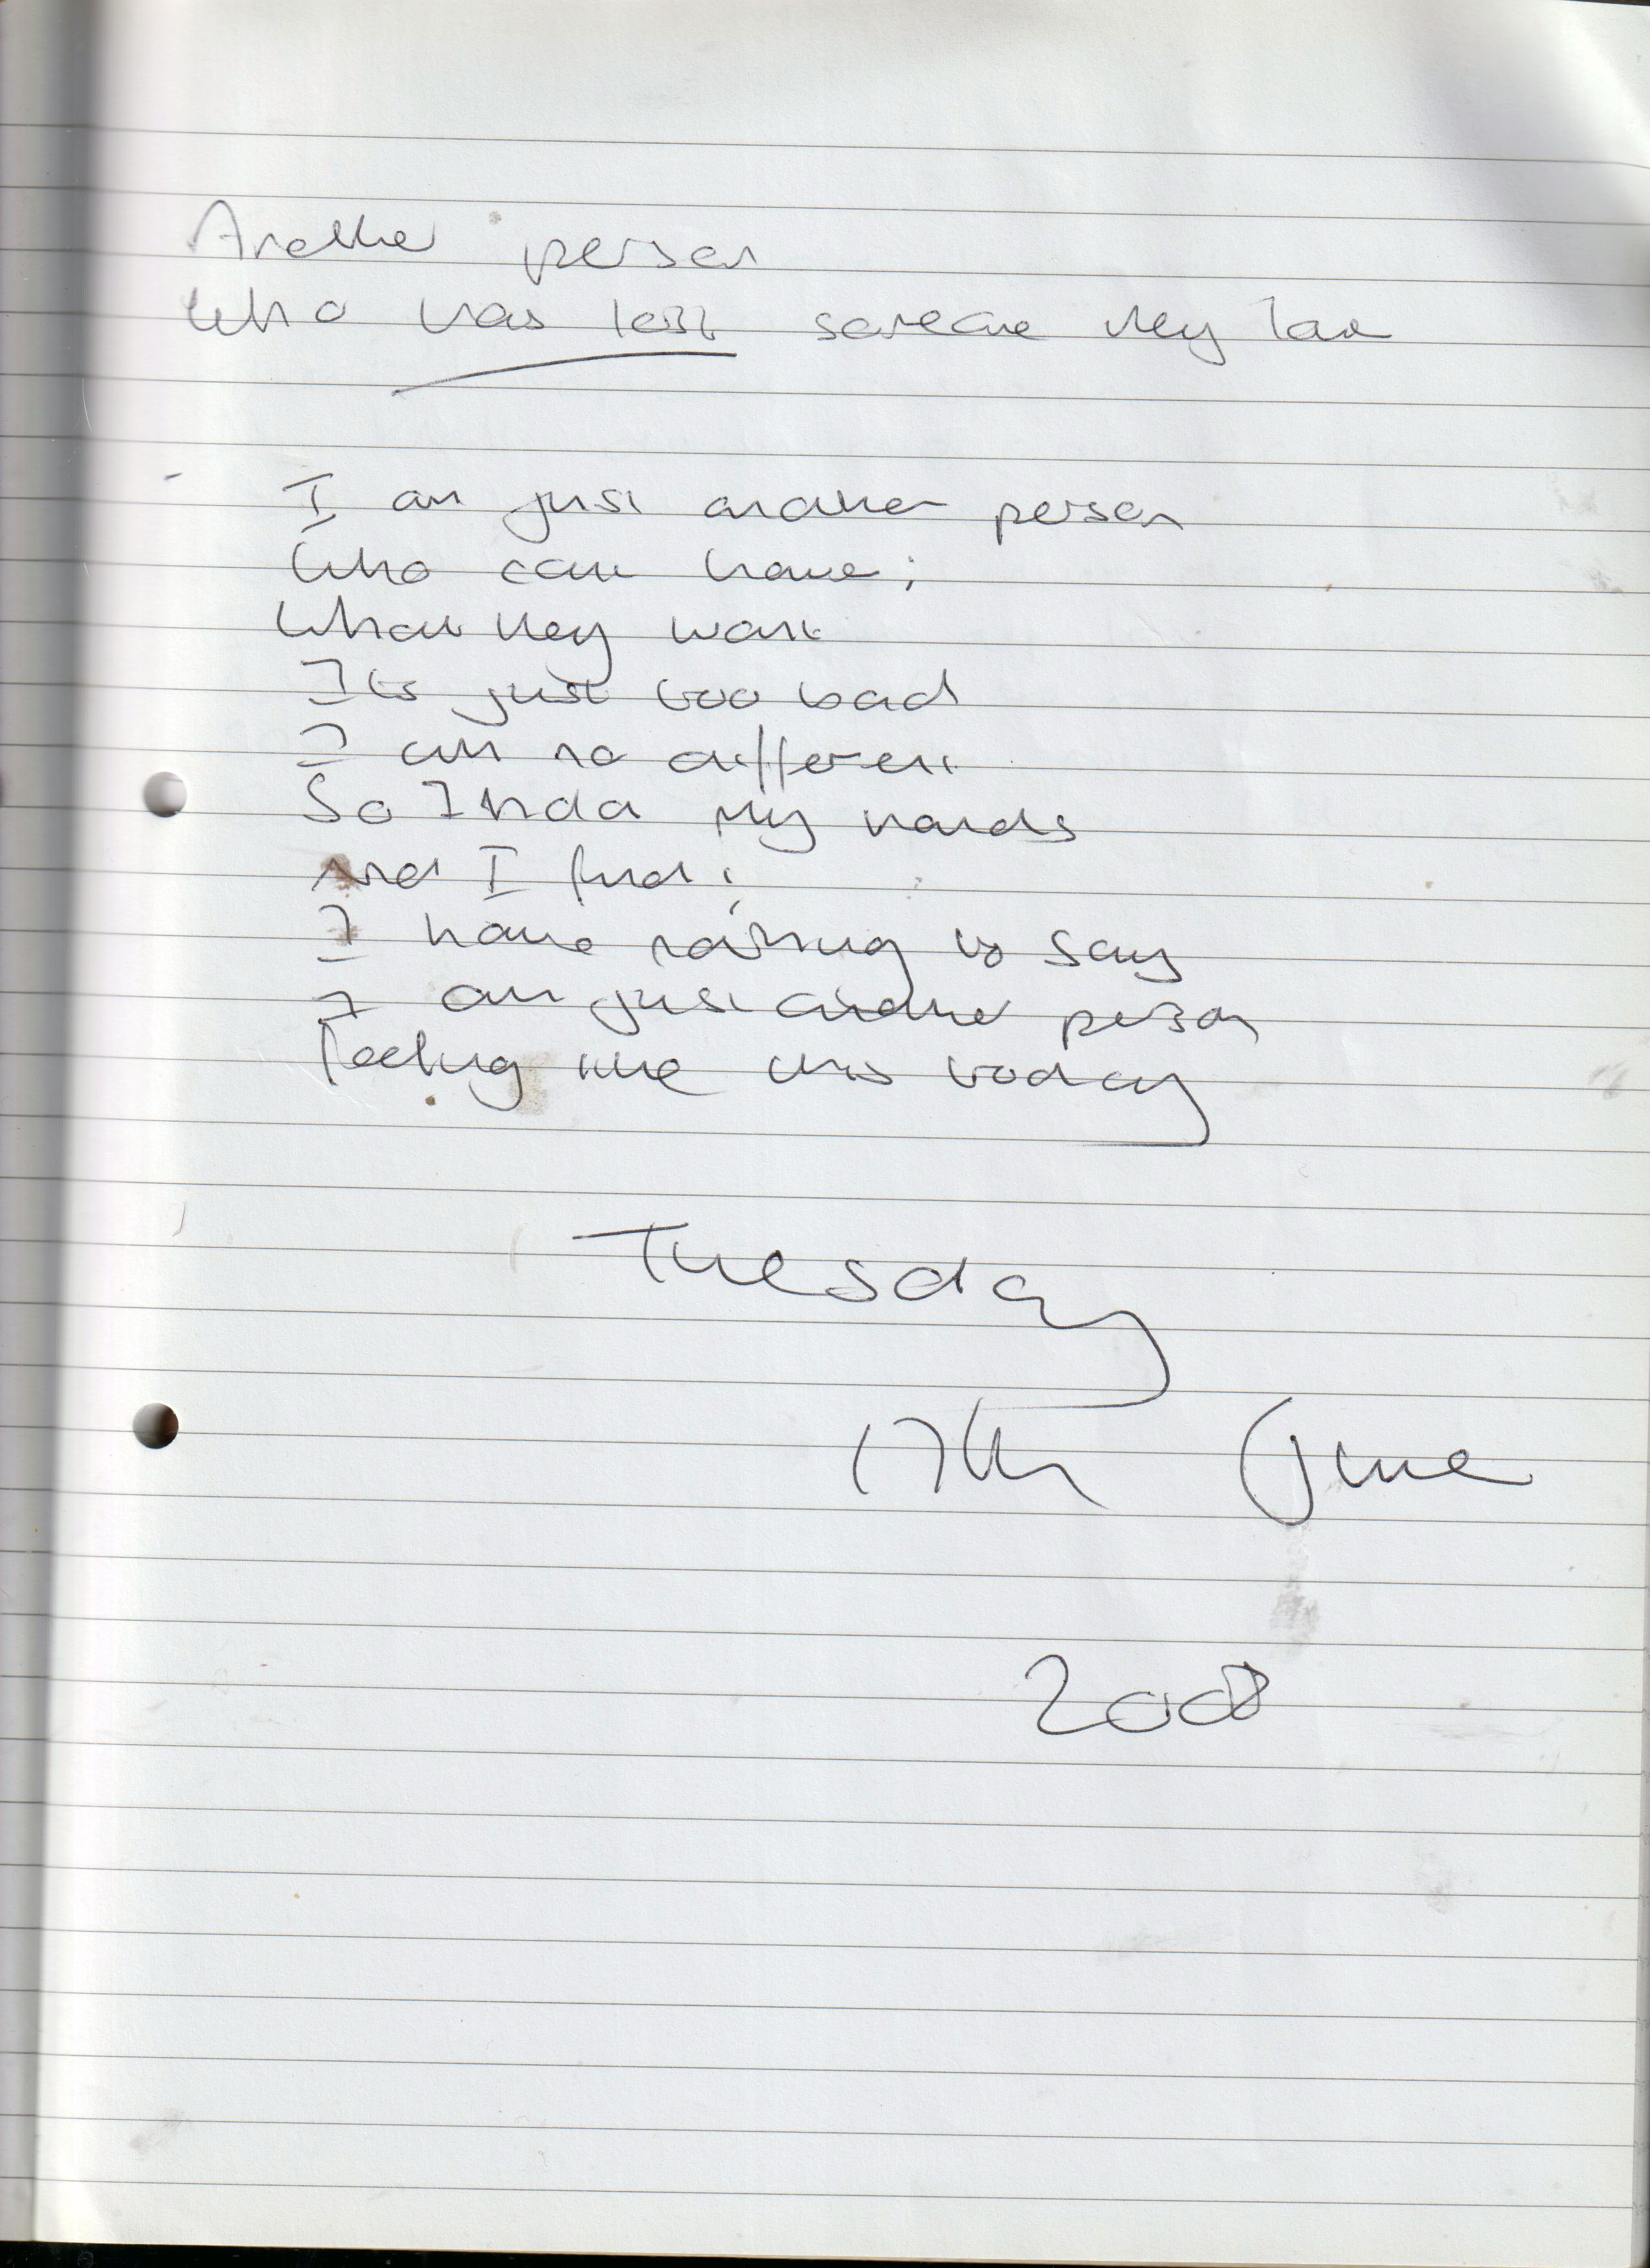 Another person
who has lost someone they love
I am just another person
Who cant have;
What they want
Its just too bad
I am no different
So I hold my hands
And I find;
I have nothing to say
I am just another person
feeling like this today
Tuesday
17th June
2008